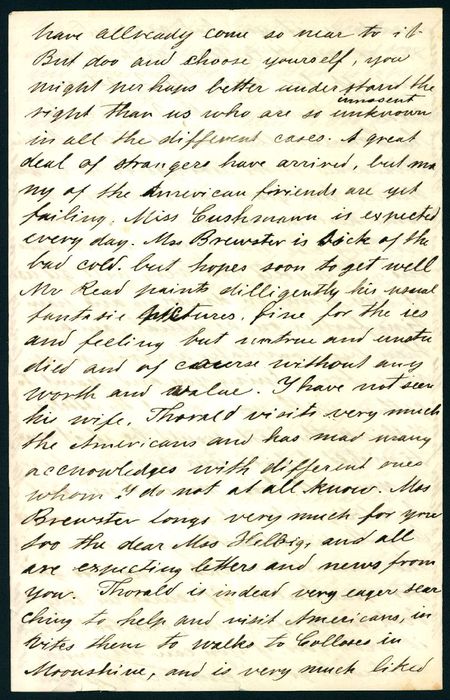 have allready come so near to it
But doo and choose yourself, you
might perhaps better understand the
right than us who are so innosent unknown
in all the different cases. A great
deal of strangers have arrived, but ma
ny of the American friends are yet
failing. Miss Cushmann is expected
every day. Mss Brewster is sick of the
bad cold. but hopes soon to get well
Mr Read paints dilligently his usual
fantasie pictures. fine for the ies
and feeling but untrue and unstu
died and of course without any
worth and value. I have not seen
his wife. Thorald visits very much
the Americans and has mad many
acknowledges with different ones
whom I do not at all know. Mss
Brewster longs very much for you
too the dear Mss Helbig, and all
are expecting letters and news from
you. Thorald is indead very eager sear
ching to help and visit Americans, in
vites them to walks to Colloses in
Moonshine, and is very much liked